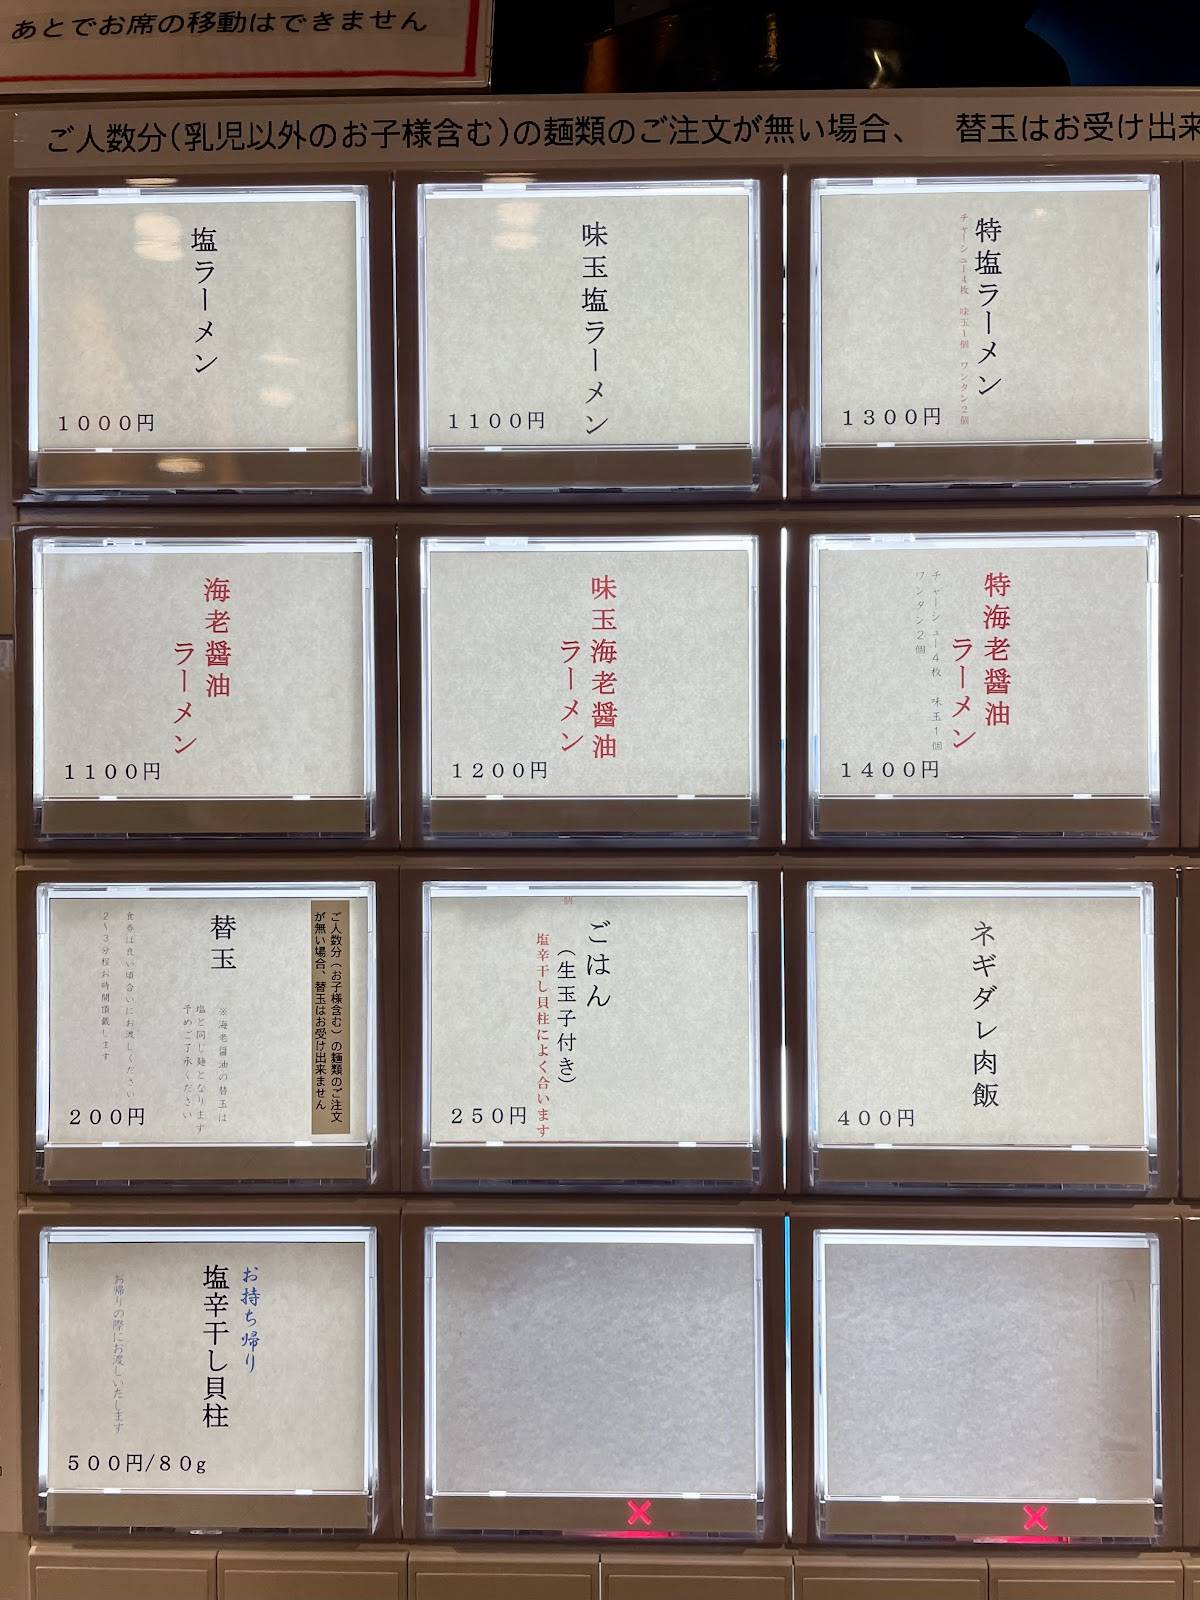 あとでお席の移動はできません
ご人数分(乳児以外のお子様含む)の麺類のご注文が無い場合、 替玉はお受け出来
塩ラーメン
1000円
味玉塩ラーメン
1100円
特塩ラーメン
チャーシュー4枚 味玉1個 ワンタン2個
1300円
海老醤油
ラーメン
1100円
味玉海老醤油
ラーメン
1200円
特海老醤油
ラーメン
チャーシュー4枚 味玉1個
ワンタン2個
1400円
ご人数分(お子様含む)の麺類のご注文
が無い場合、替玉はお受け出来ません
替玉
※海老醤油の替玉は
塩と同じ麺となります
予めご了承ください
食券は良い頃合いにお渡しください
2~3分程お時間頂戴します
200円
個
ごはん
(生玉子付き)
塩辛干し貝柱によく合います
250円
ネギダレ肉飯
400円
お持ち帰り
塩辛干し貝柱
お帰りの際にお渡しいたします
500円/80g